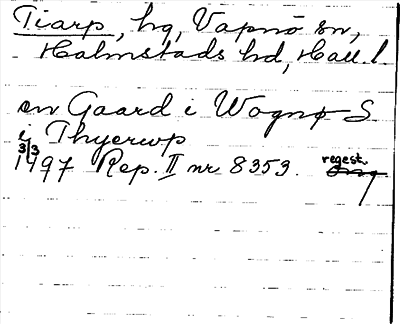 Tiarp, hg, Vapnö sn,
Halmstads hd, Hall. l.
en Gaard i Wognø S
i Thyerwp
3/3
1497 Rep. II nr 8353. regest.